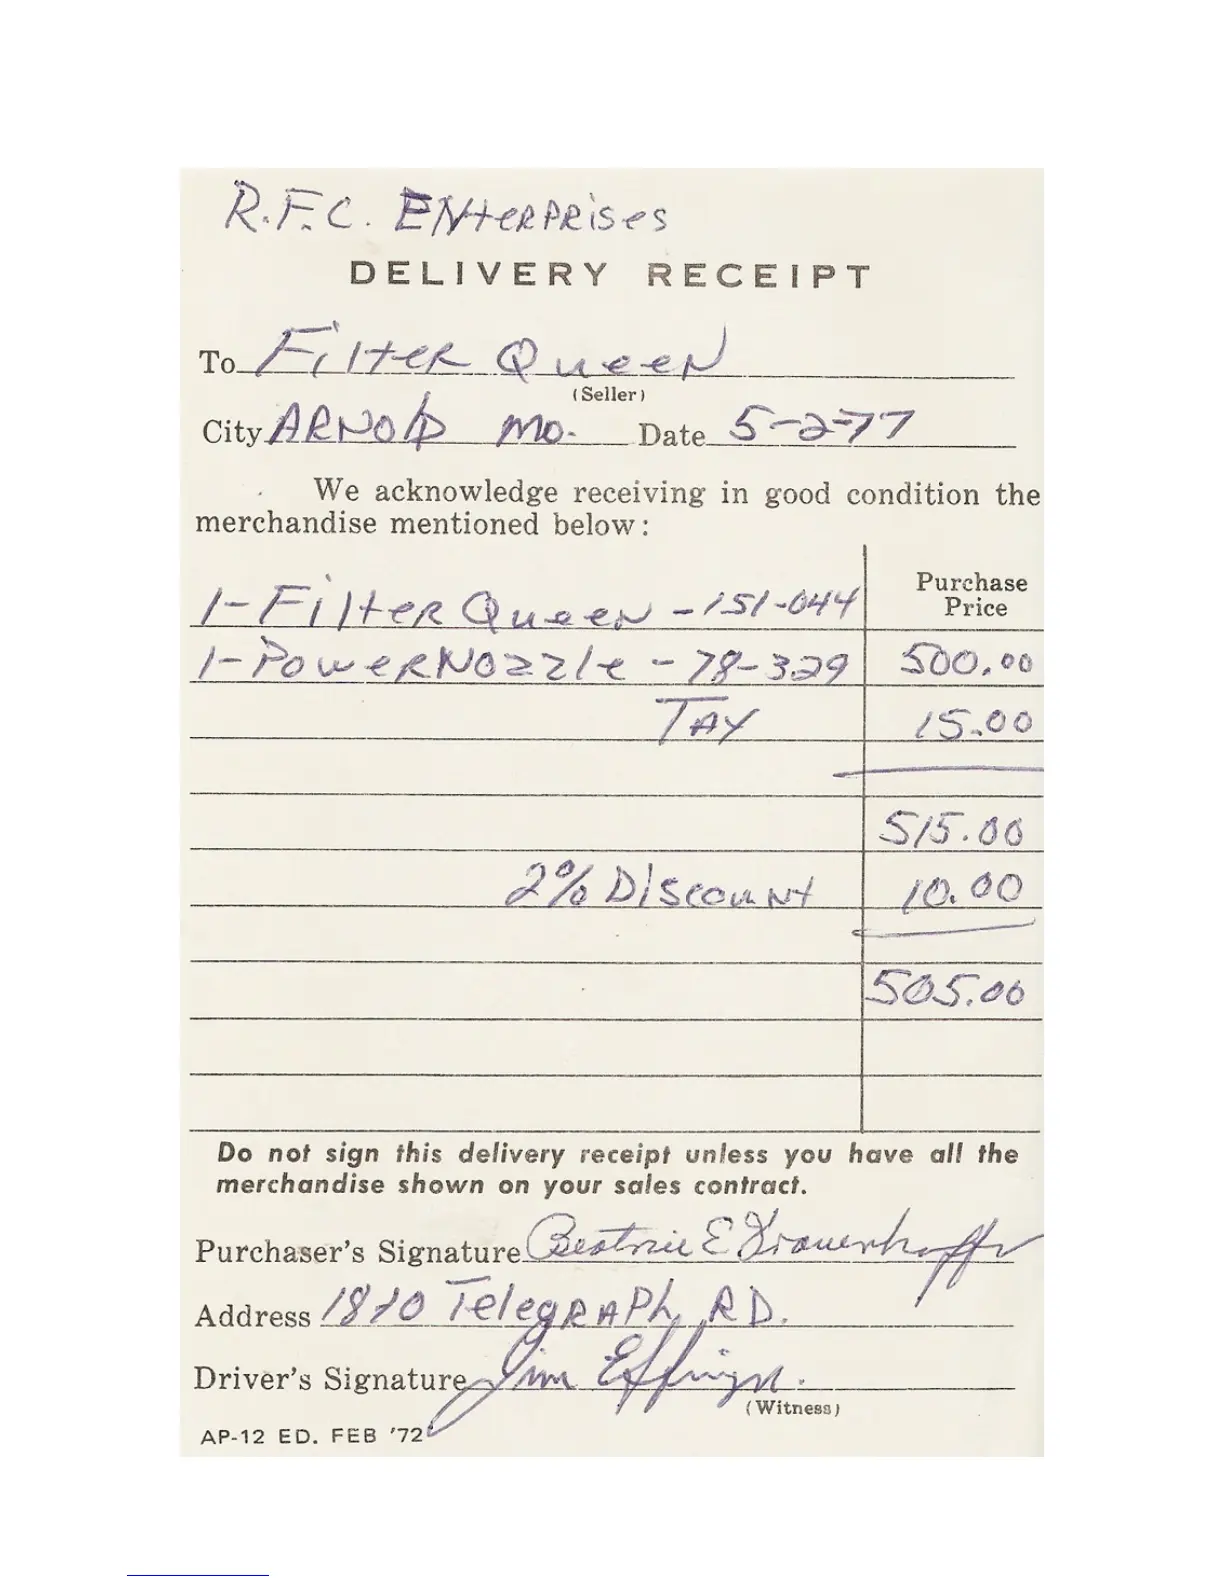 R.F.C. ENterPRises
DELIVERY RECEIPT
To Filter Queen
(Seller)
City ARNOLD MO. Date 5-2-77
We acknowledge receiving in good condition the
merchandise mentioned below:
Purchase
Price
1-Filter Queen - 151-044
1-Power Nozzle - 78-329 500.00
TAX 15.00
515.00
2% Discount 10.00
505.00
Do not sign this delivery receipt unless you have all the
merchandise shown on your sales contract.
Purchaser's Signature Beatrice E
Address Telegraph RD.
Driver's Signature Jim
(Witness)
AP-12 ED. FEB '72